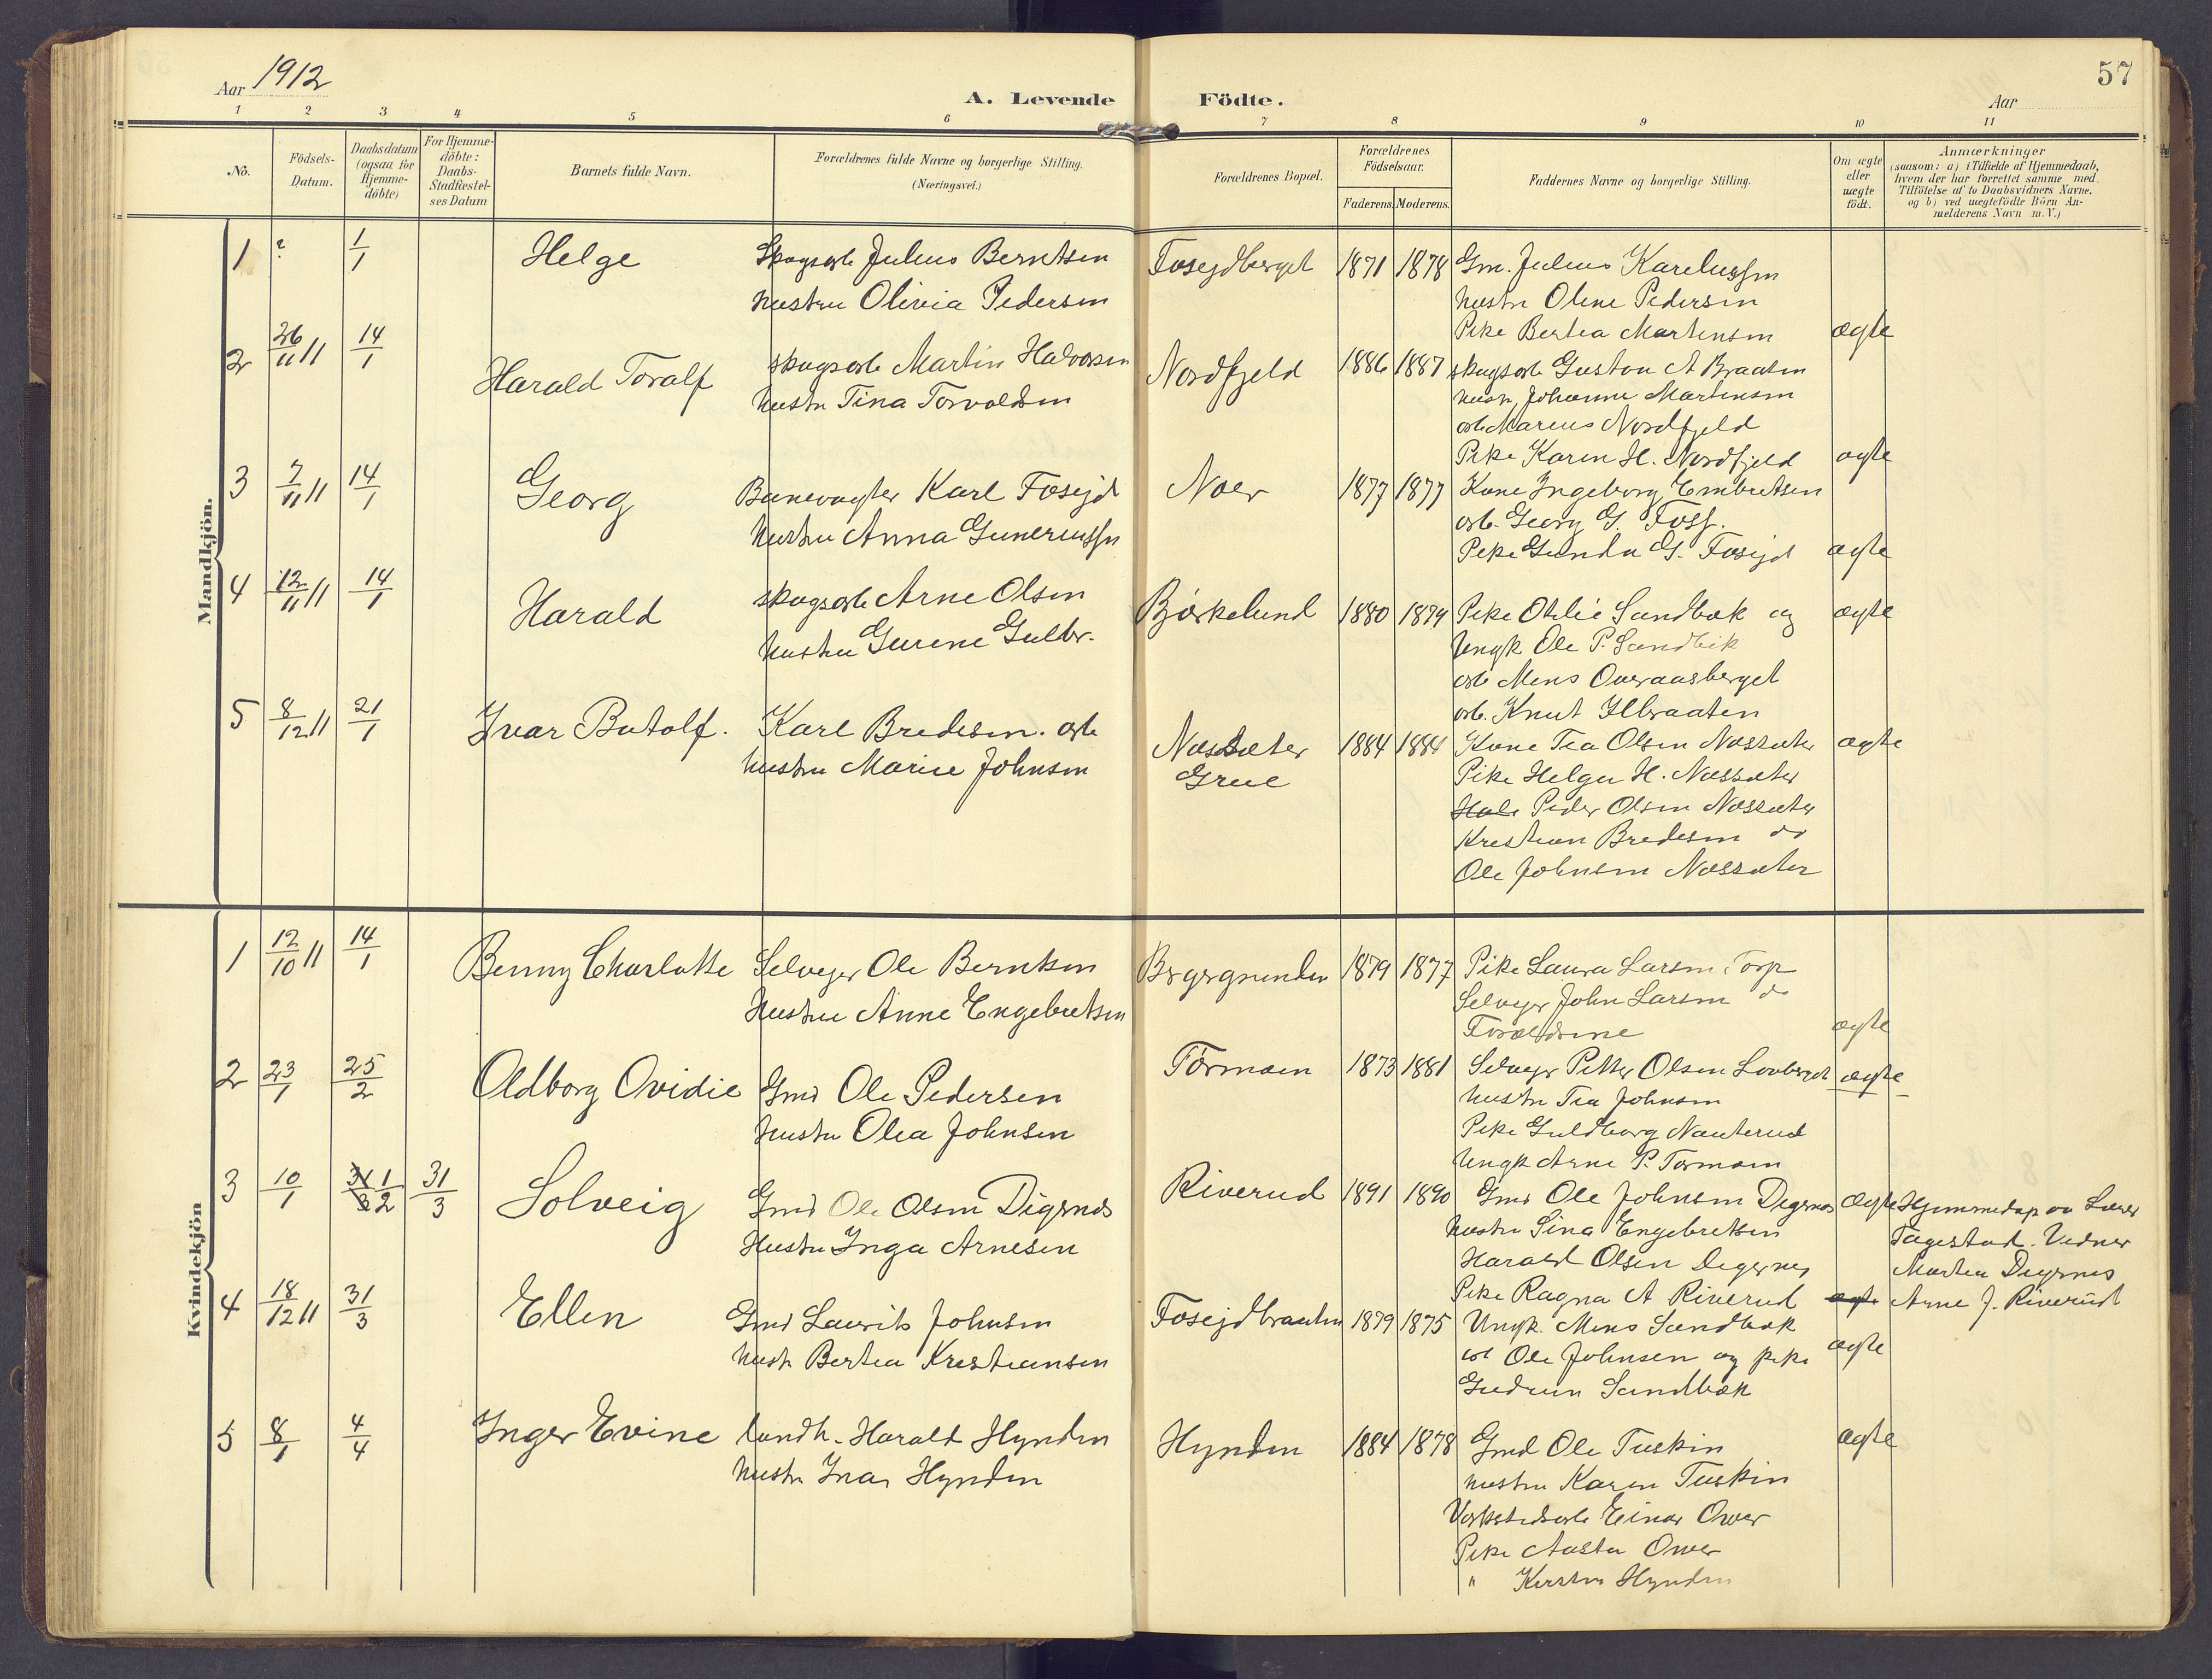 Aar 1912
A. Levende Födte.
Aar
57
1 2 3 4 5 6 7 8 9 10 11
No.
Födsels-
Datum.
Daabsdatum
(ogsaa for
Hjemme-
döbte)
For Hjemme-
döbte:
Daabs-
Stadfæstel-
ses Datum
Barnets fulde Navn.
Forældrenes fulde Navne og borgerlige Stilling.
(Næringsvei.)
Forældrenes Bopæl.
Forældrenes
Födselsaar.
Faderens. Moderens.
Faddernes Navne og borgerlige Stilling.
Om ægte
eller
uægte
födt.
Anmærkninger
(saasom: a) i Tilfælde af Hjemmedaab,
hvem der har forrettet samme med
Tilföielse af to Daabsvidners Navne,
og b) ved uægtefödte Börn An-
melderens Navn m. V.)
Mandkjön.
1 ? 1/1 Helge Skogsarb Julius Berntsen Foseydberget 1871 1878 Gm. Julius
hustru Olivia Pedersen hustru Oline Pedersen
Pike Bertea Martensen ægte
2 26/11 11 14/1 Harald Toralf skogsarb Martin Halvorsen Nordfjeld 1886 1887 skogsarb Gustav A Braaten
hustru Tina Torvaldsen hustr Johanne Martinsen
arb Marius Nordfjeld
Pike Karen H. Nordfjeld ægte
3 7/11 11 14/1 Georg Banevogter Karl Foseyd Noer 1877 1877 Kone Ingeborg Embretsen
hustru Anna arb. Georg G. Foss.
Pike Gunda G. Foseyd ægte
4 12/11 11 14/1 Harald skogsarb Arne Olsen Björkelund 1880 1879 Pike Otelie Sandbæk og ægte
hustru Gurene Guldbr. Ungk Ole P. Sandbæk
arb Mens Overaasberget
arb. Knut Ilbraaten
5 8/12 11 21/1 Ivar Botolf. Karl Bredesen. arb Næssæter 1884 1884 Kone Tea Olsen Næssæter ægte
hustru Marie Johnsen Grue Pike Helga H. Næssæter
Peder Olsen Næssæter
Kristian Bredesen do
Ole Johnsen Næssæter
Kvindekjön
1 12/10 11 14/1 Benny Charlotte Selveyer Ole Berntsen 1879 1877 Pike Laura Larsen Torp
Hustru Anne Engebretsen Selveyer John Larsen do
Forældrene ægte
2 23/1 25/2 Oldborg Ovidie Gmd Ole Pedersen Tormoen 1873 1881 Selveyr Petter Olsen ægte
Hustru Olea Johnsen hustru Tea Johnsen
Pike Guldborg Nauterud
Ungk Arne P. Tormoen
3 10/1 31/3 1/2 31/3 Solveig Gmd Ole Olsen Digernes Riverud 1891 1890 Gmd Ole Johnsen Degernes ægte Hjemmedøp av Lærer
Hustru Inga Arnesen hustru Sina Engebretsen Fagestad. Vidner
Harald Olsen Degernes Martin Degernes
Pike Ragna A Riverud ægte Arne J. Riverud
4 18/12 11 31/3 Ellen Gmd Laurits Johnsen Foseydbraaten 1879 1875 Ungk. Mens Sandbæk
hustr Bertea Kristiansen arb Ole Johnsen og pike ægte
Gudrun Sandbæk
5 8/1 4/4 Inger Evine Landh. Harald Hynden Hynden 1884 1878 Gmd Ole Tuskin ægte
hustr Ina Hynden hustru Karen Tuskin
Verkstedsarb Einar Over
Pike Aasta Over
" Kirsten Hynden